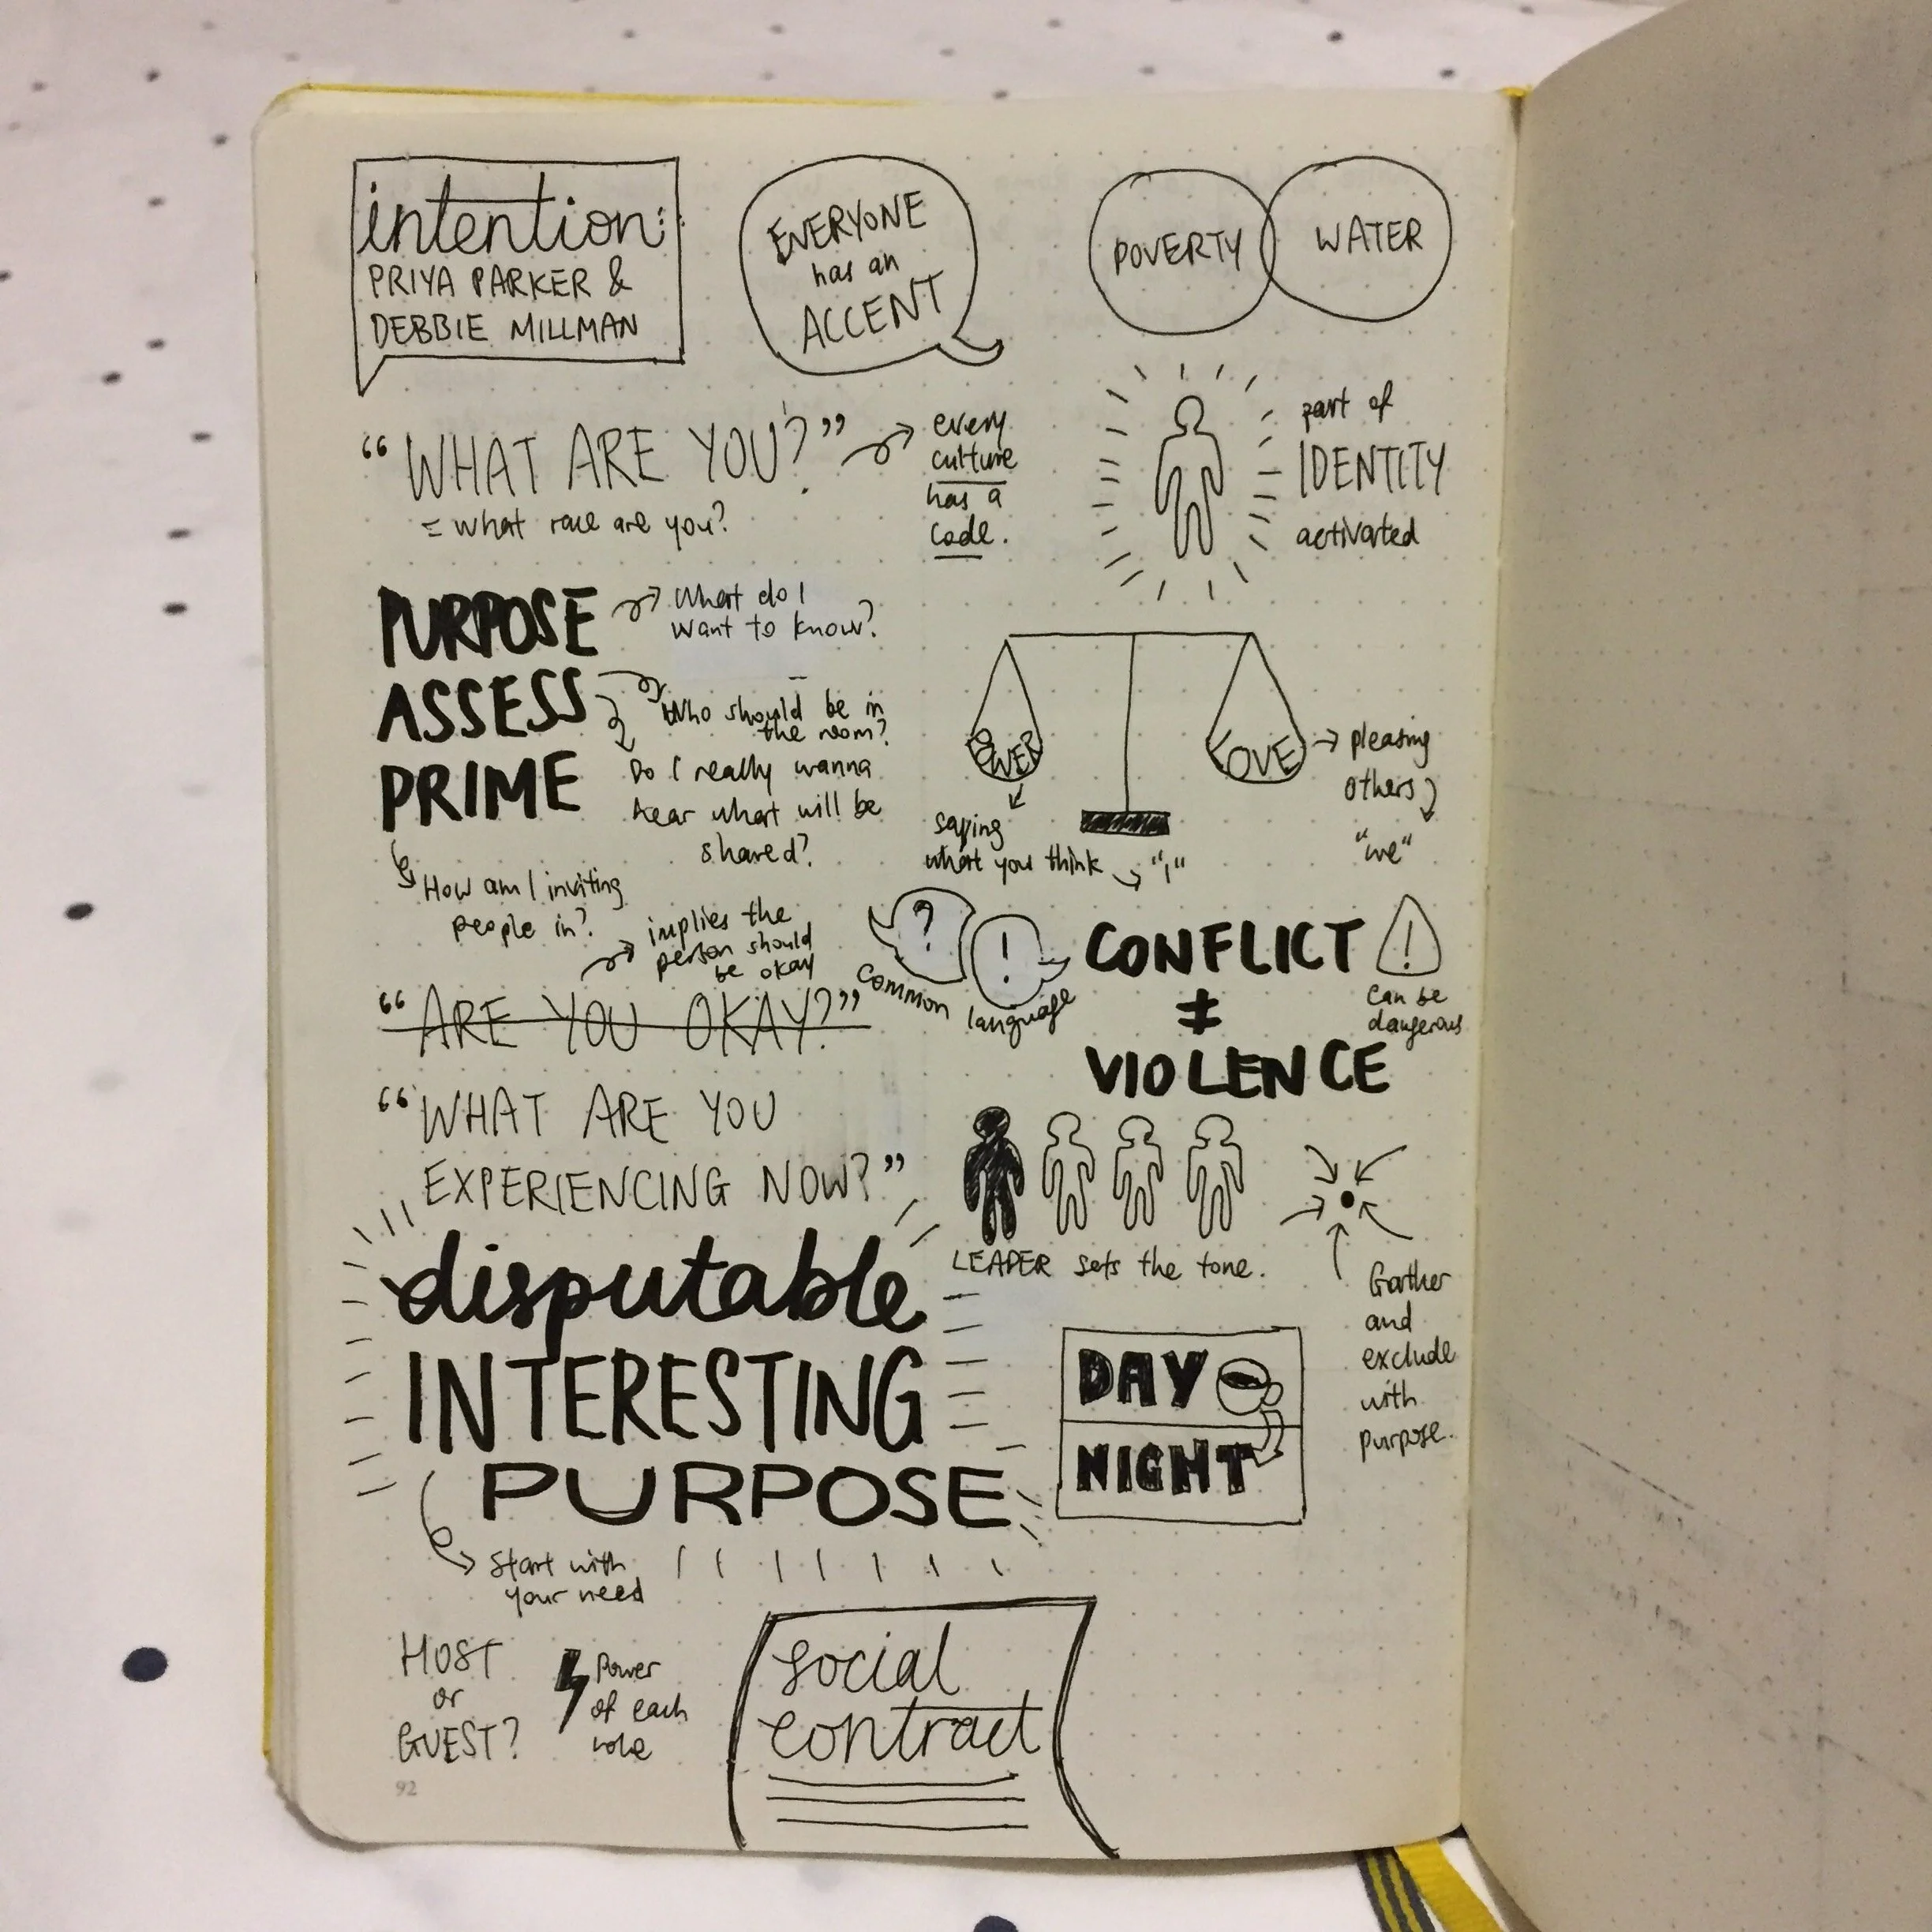 intention:
PRIYA PARKER &
DEBBIE MILLMAN
EVERYONE
has an
ACCENT
POVERTY
WATER
“WHAT ARE YOU?”
= what race are you?
every
culture
has a
code.
part of
IDENTITY
activated
PURPOSE
What do I
want to know?
ASSESS
Who should be in
the room?
Do I really wanna
hear what will be
shared?
PRIME
How am I inviting
people in?
POWER
saying
what you think
"I"
LOVE
pleasing
others
"we"
implies the
person should
be okay
“ARE YOU OKAY?”
?
!
common language
CONFLICT
≠
VIOLENCE
!
can be
dangerous
“WHAT ARE YOU
EXPERIENCING NOW?”
LEADER sets the tone.
Gather
and
exclude
with
purpose.
disputable
INTERESTING
PURPOSE
Start with
your need
DAY
NIGHT
HOST
or
GUEST?
Power
of each
role
social
contract
92